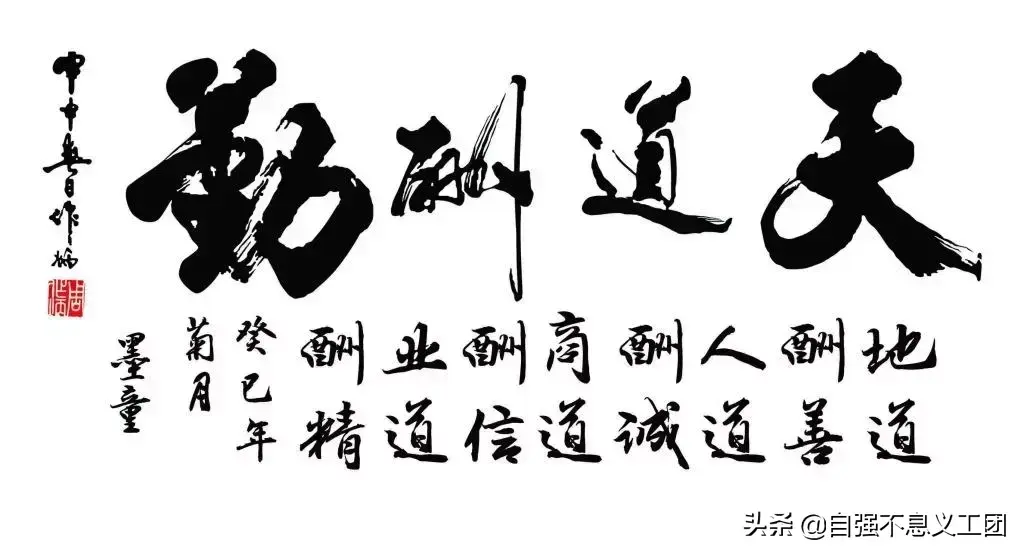 天道酬勤
地道
酬善
人道
酬诚
商道
酬信
业道
酬精
癸巳年
菊月
墨童
头条 @自强不息义工团